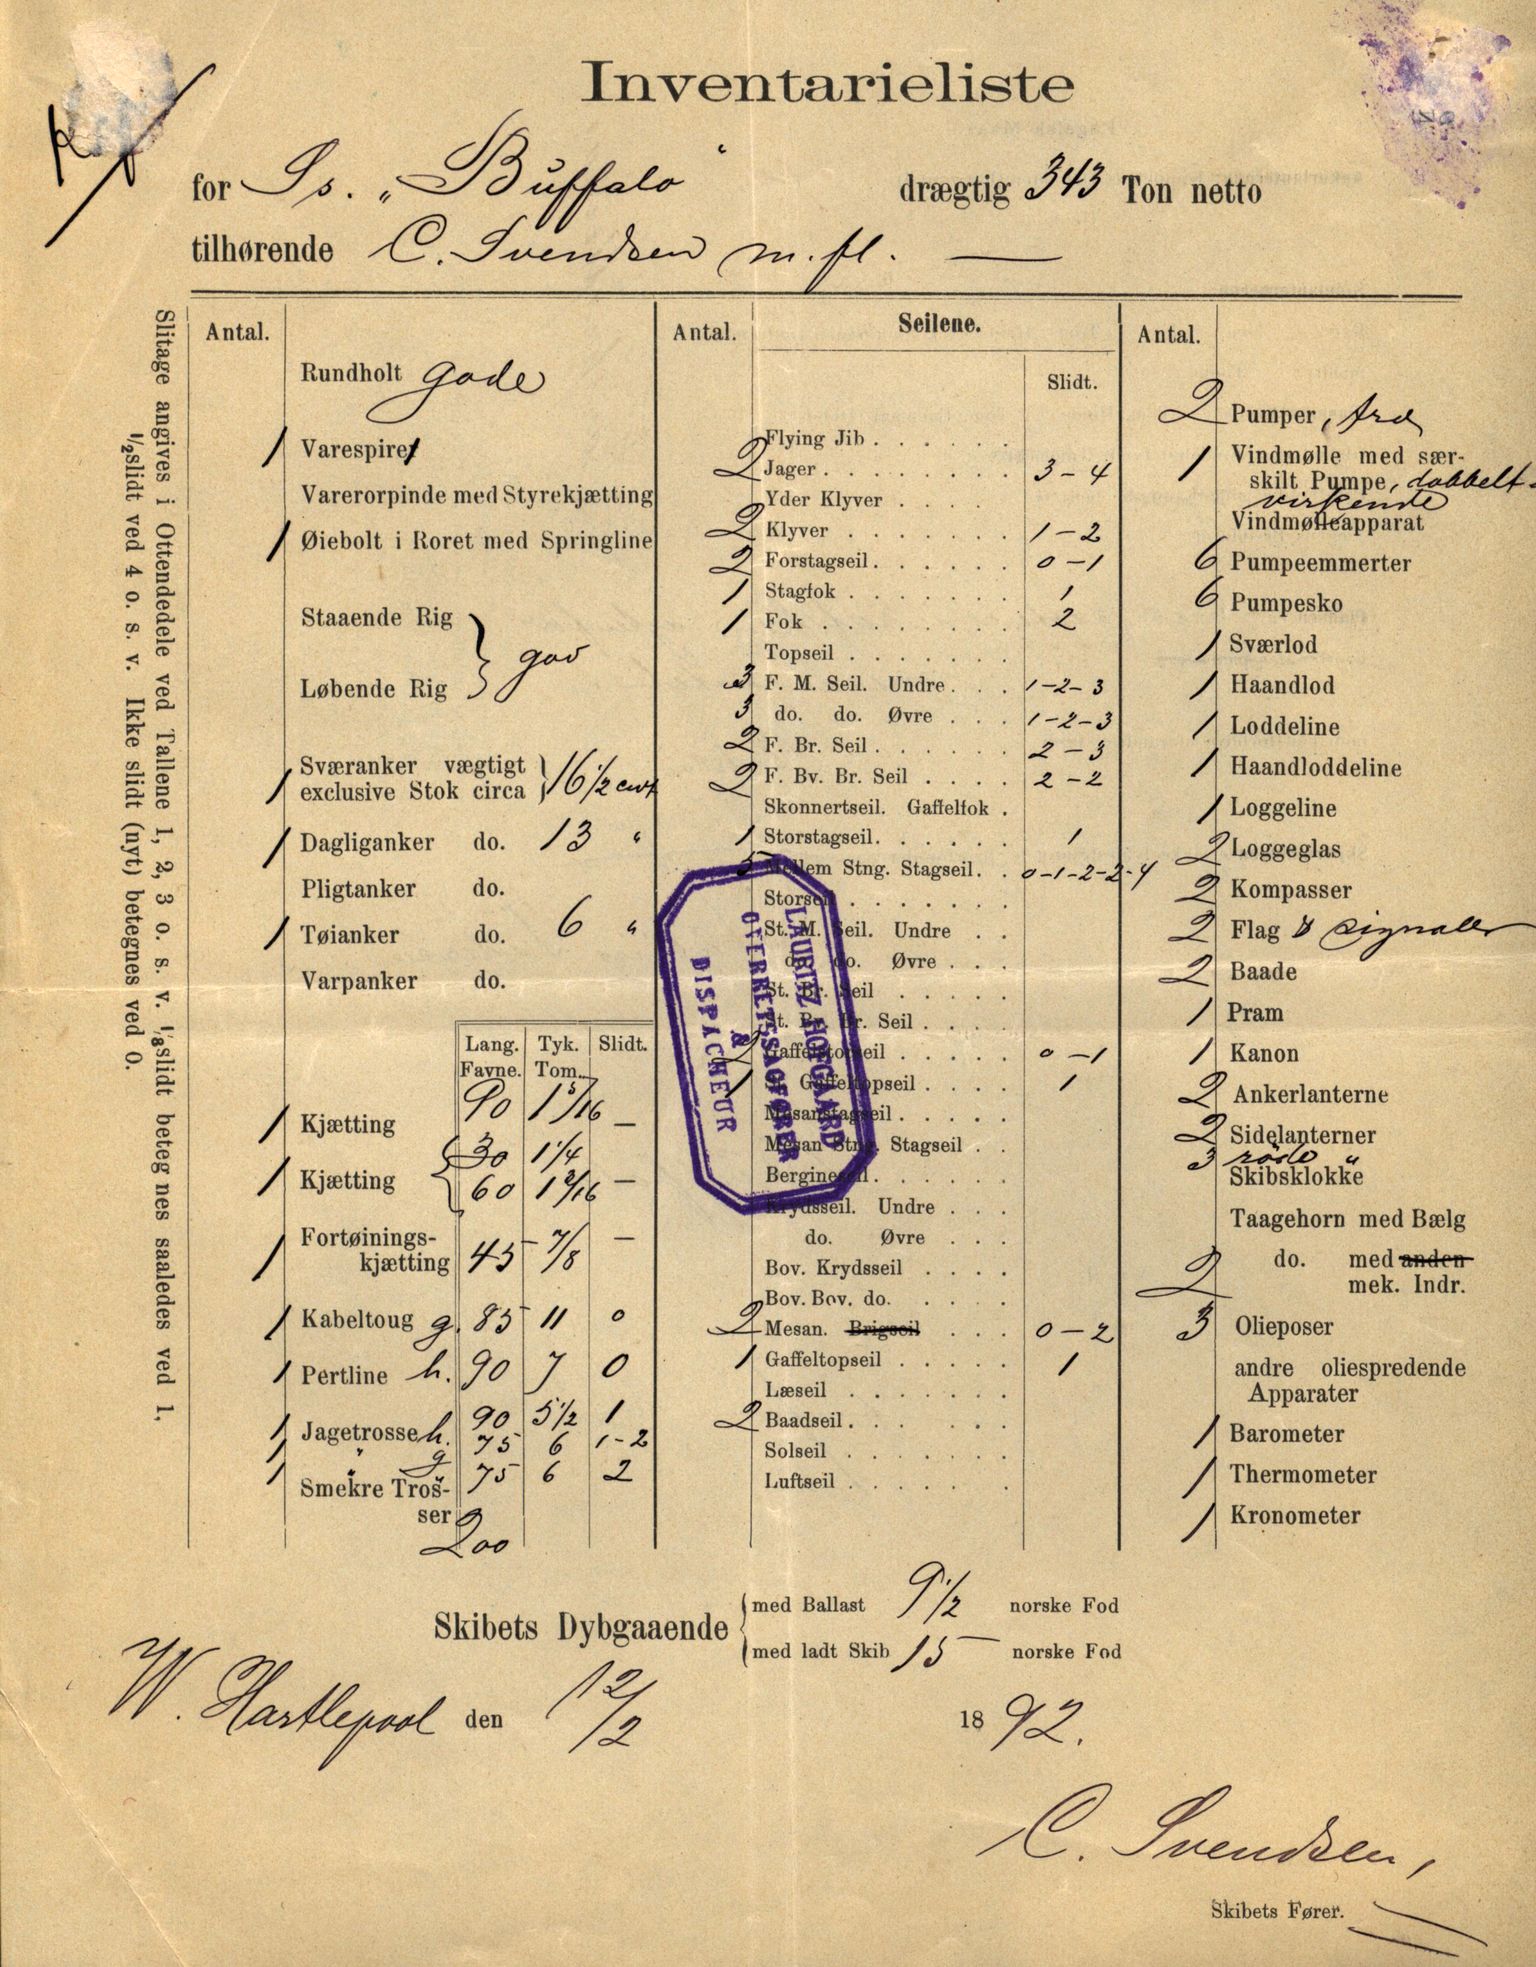 Inventarieliste
for Ss. „Buffalo“ drægtig 343 Ton netto
tilhørende C. Svendsen m. fl. —
Slitage angives i Ottendedele ved Tallene 1, 2, 3 o. s. v. ⅛slidt beteg nes saaledes ved 1,
½slidt ved 4 o. s. v. Ikke slidt (nyt) betegnes ved 0.
Antal.
Rundholt gode
1 Varespiret
Varerorpinde med Styrekjætting
1 Øiebolt i Roret med Springline
Staaende Rig
Løbende Rig } god
1 Sværanker vægtigt
exclusive Stok circa } 16 1/2 cwt
1 Dagliganker do. 13 "
Pligtanker do.
1 Tøianker do. 6 "
Varpanker do.
Lang. Tyk. Slidt.
Favne. Tom.
1 Kjætting 90 1 5/16 —
{ 30 1 1/4
1 Kjætting { 60 1 2/16 —
Fortøinings-
1 kjætting 45 7/8 —
1 Kabeltoug g. 85 11 0
1 Pertline h. 90 7 0
1 Jagetrosse h. 90 5 1/2 1
1 " 75 6 1-2
1 " g 75 6 2
Smekre Tros-
ser
200
Antal. Seilene.
Slidt.
Flying Jib
2 Jager 3-4
Yder Klyver
2 Klyver 1-2
2 Forstagseil 0-1
1 Stagfok 1
1 Fok 2
Topseil
3 F. M. Seil. Undre 1-2-3
3 do. do. Øvre 1-2-3
2 F. Br. Seil 2-3
2 F. Bv. Br. Seil 2-2
Skonnertseil. Gaffelfok
1 Storstagseil 1
5 Mellem Stng. Stagseil 0-1-2-2-4
Storseil
St. M. Seil. Undre
do. do. Øvre
St. Br. Seil
St. Bv. Br. Seil
2 Gaffelstorseil 0-1
1 St. Gaffeltopseil 1
Mesanstagseil
Mesan Stng. Stagseil
Bergineseil
Krydsseil. Undre
do. Øvre
Bov. Krydsseil
Bov. Bov. do.
2 Mesan. Brigseil 0-2
1 Gaffeltopseil 1
Læseil
2 Baadseil
Solseil
Luftseil
LAURITZ HOFGAARD
OVERRETSSAGFØRER
&
DISPACHEUR
Antal.
2 Pumper,
1 Vindmølle med sær-
skilt Pumpe, dobbelt-
virkende
Vindmølleapparat
6 Pumpeemmerter
6 Pumpesko
1 Sværlod
1 Haandlod
1 Loddeline
1 Haandloddeline
1 Loggeline
2 Loggeglas
2 Kompasser
2 Flag & signaller
2 Baade
1 Pram
1 Kanon
2 Ankerlanterne
2 Sidelanterner
3 röde "
Skibsklokke
Taagehorn med Bælg
do. med anden
2 mek. Indr.
3 Olieposer
andre oliespredende
Apparater
1 Barometer
1 Thermometer
1 Kronometer
Skibets Dybgaaende
med Ballast 9 1/2 norske Fod
med ladt Skib 15 — norske Fod
W. Hartlepool den 12/2 1892.
C. Svendsen,
Skibets Fører.